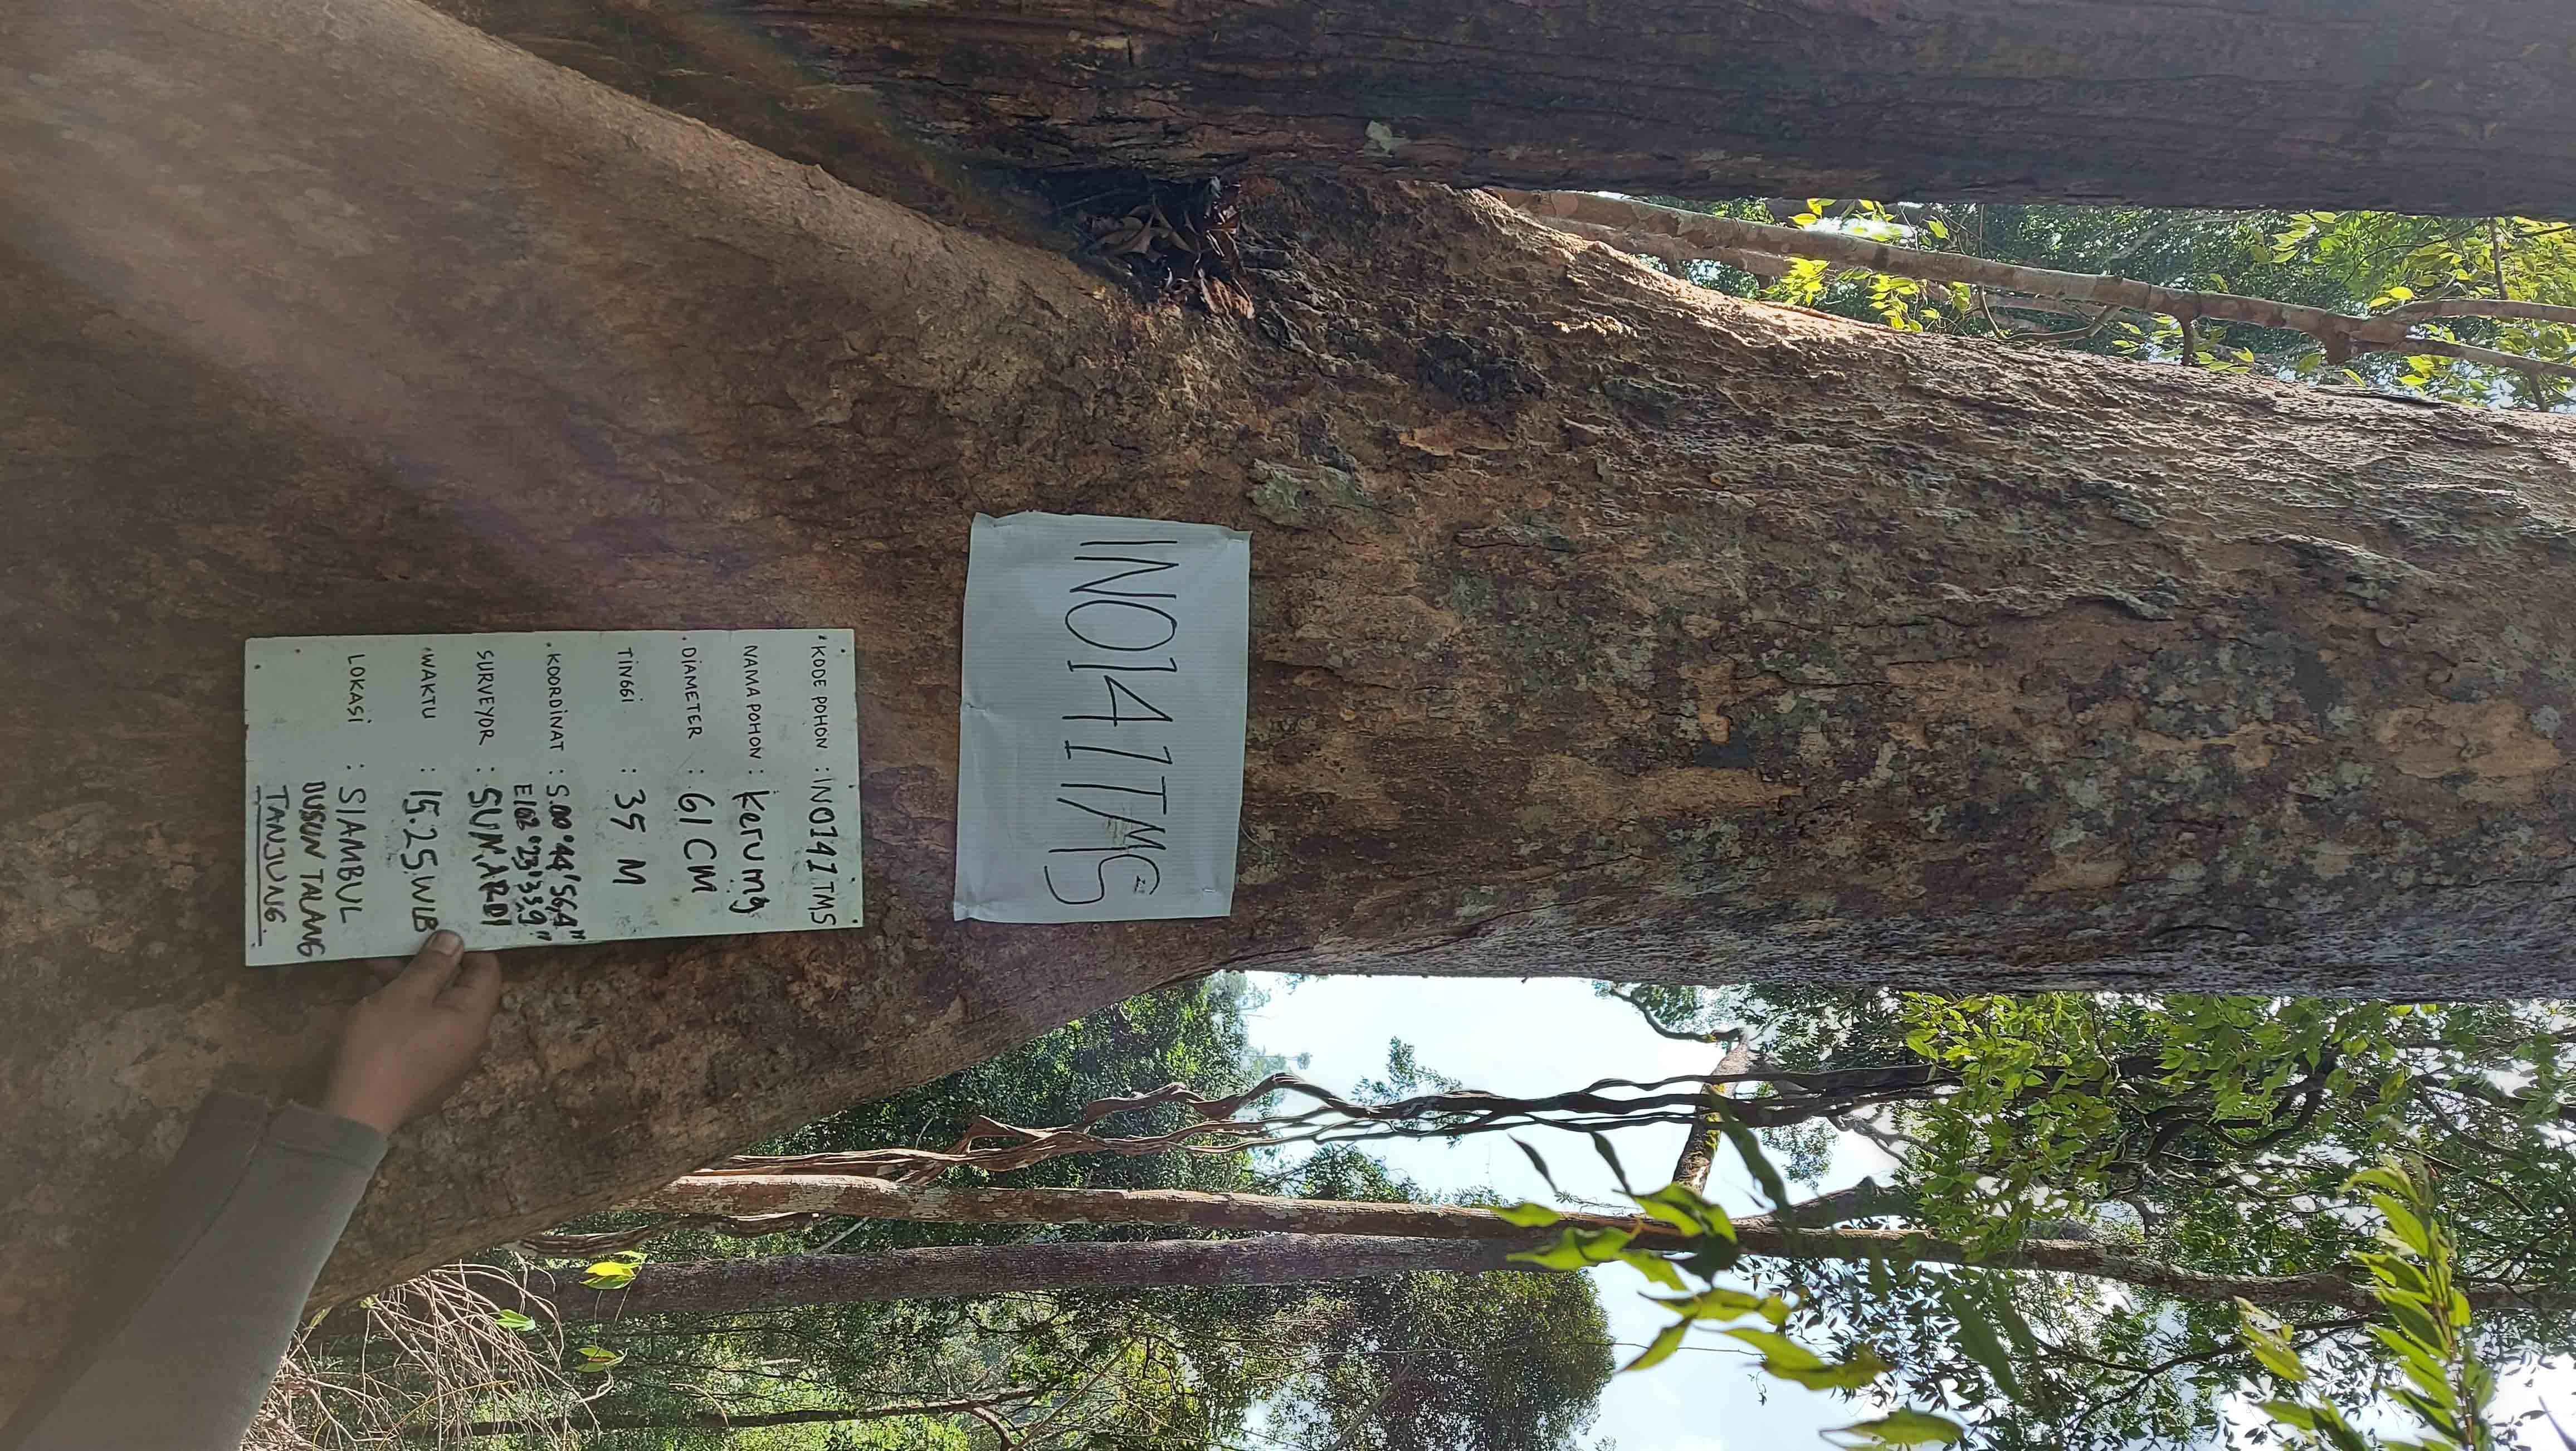 INO141TMS
KODE POHON : INO141TMS
NAMA POHON : Kerumg
DIAMETER : 61 CM
TINGGI : 35 M
KOORDINAT : S.00°44'56,4"
E102°23'33,9"
SURVEYOR : SUNARDI
WAKTU : 15.25 WIB
LOKASI : SIAMBUL
DUSUN TALANG
TANJUNG.